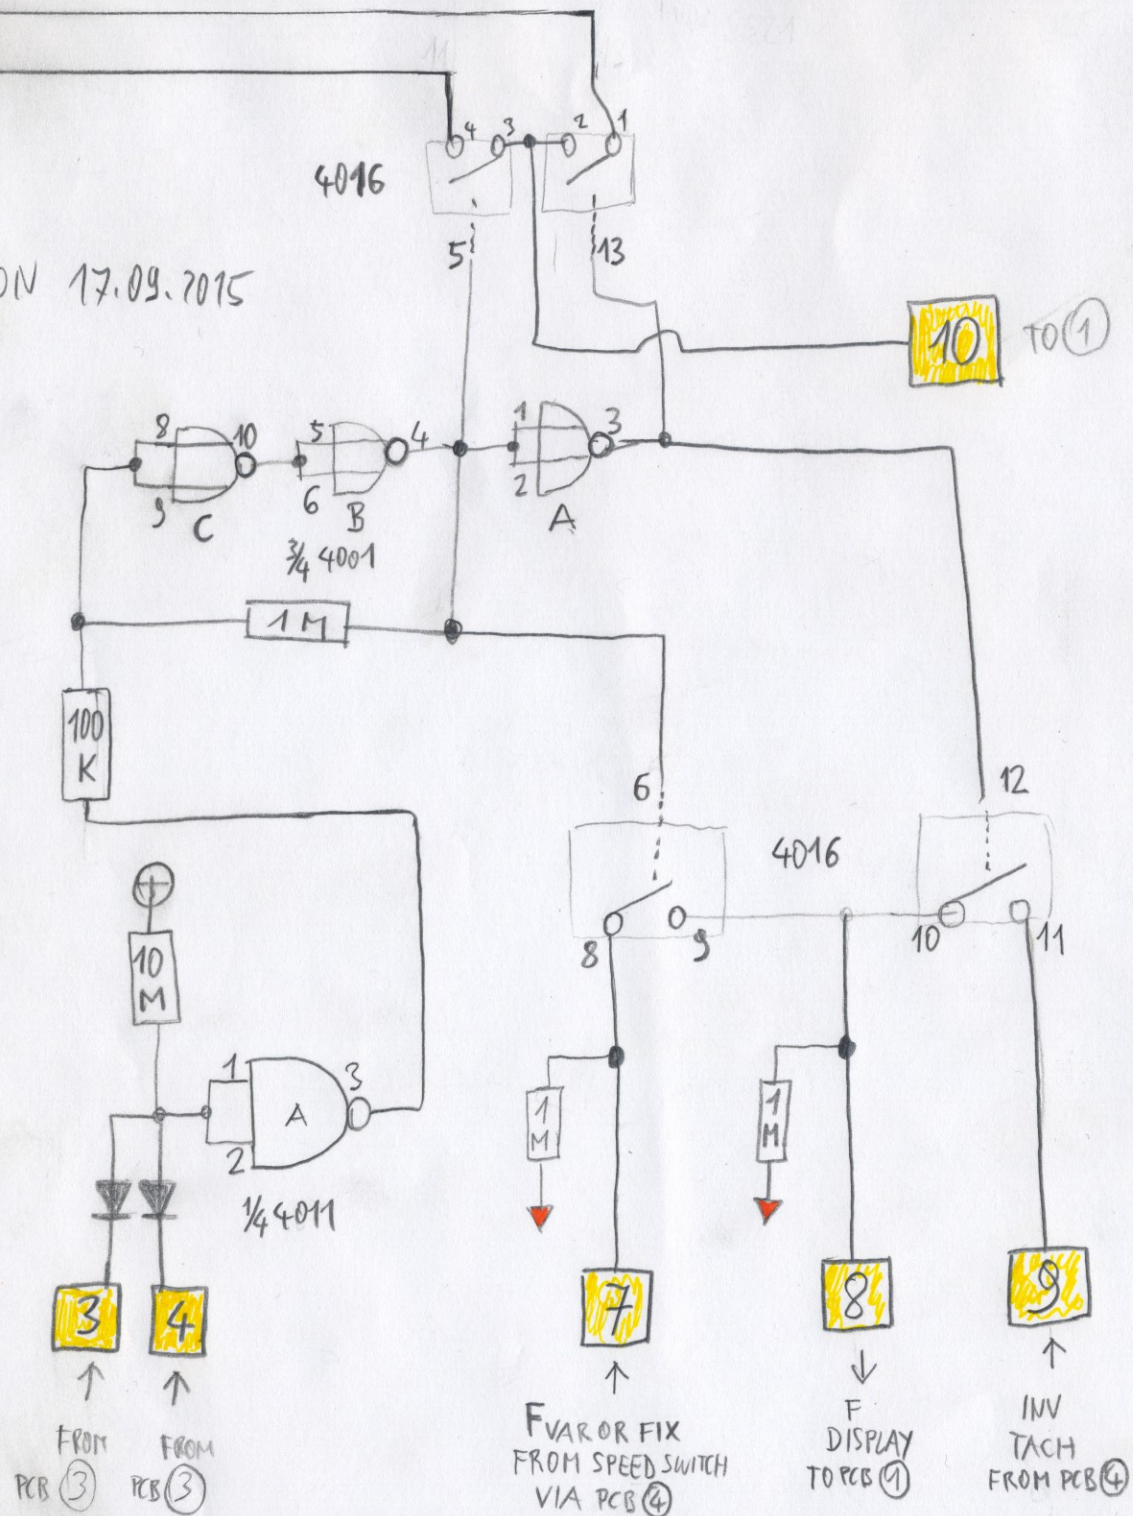 4 3 2 1
4016
5 13
ON 17.09.2015
10 TO 1
8 10 5 4 1 3
9 6 2
C B A
3/4 4001
1 M
100
K
6 12
4016
10
M
8 9 10 11
1 3
A
2
1
M
1
M
1/4 4011
3 4 7 8 9
FROM
PCB 3
FROM
PCB 3
FVAR OR FIX
FROM SPEED SWITCH
VIA PCB 4
F
DISPLAY
TO PCB 1
INV
TACH
FROM PCB 4